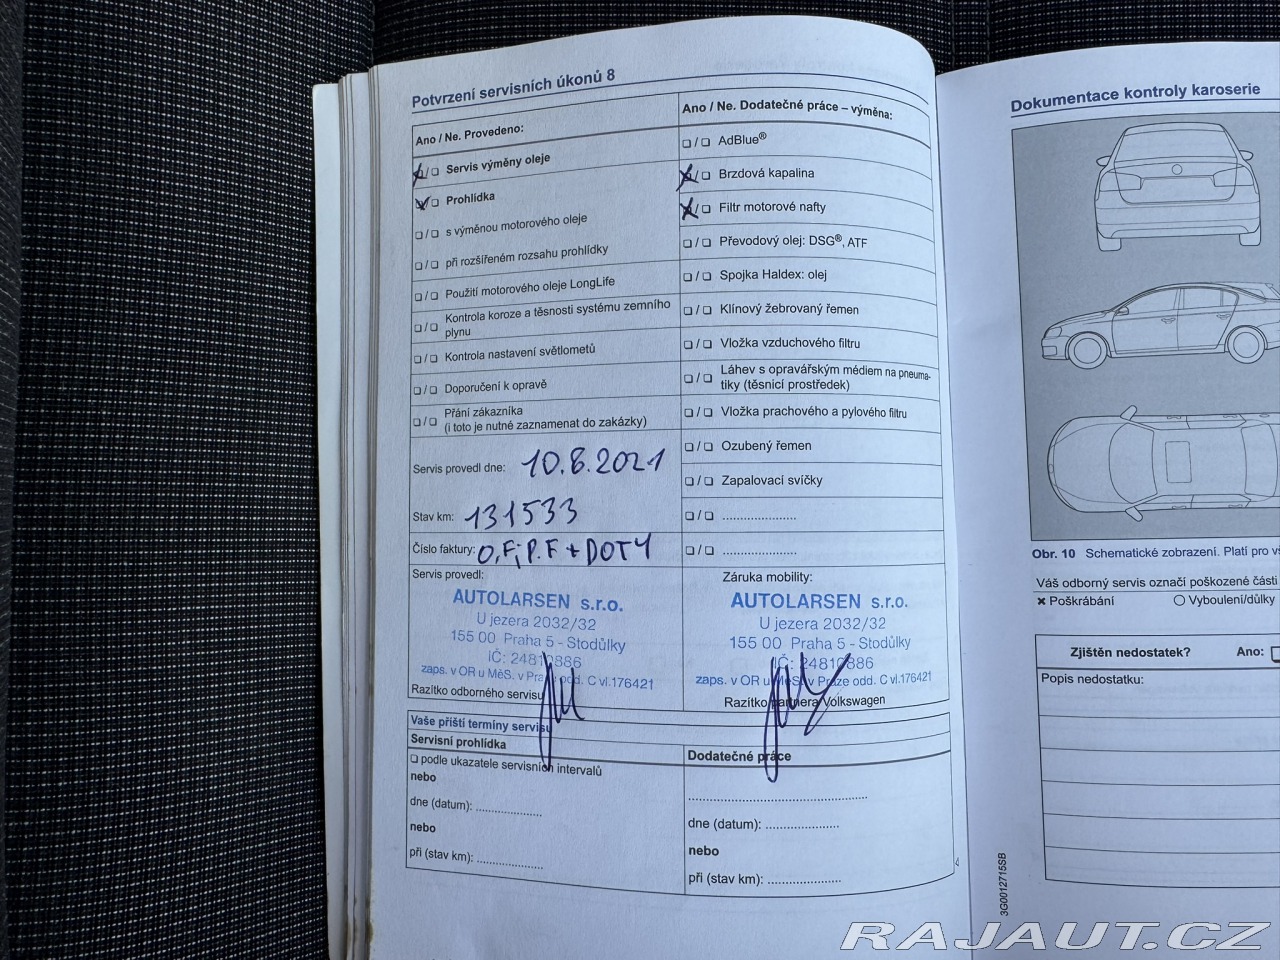 Potvrzení servisních úkonů 8
Ano / Ne. Provedeno:
❏ / ❏ Servis výměny oleje
❏ Prohlídka
❏ / ❏ s výměnou motorového oleje
❏ / ❏ při rozšířeném rozsahu prohlídky
❏ / ❏ Použití motorového oleje LongLife
❏ / ❏ Kontrola koroze a těsnosti systému zemního
plynu
❏ / ❏ Kontrola nastavení světlometů
❏ / ❏ Doporučení k opravě
❏ / ❏ Přání zákazníka
(i toto je nutné zaznamenat do zakázky)
Servis provedl dne: 10.8.2021
Stav km: 131533
Číslo faktury: O,F; P.F + DOT4
Servis provedl:
AUTOLARSEN s.r.o.
U jezera 2032/32
155 00 Praha 5 - Stodůlky
IČ: 24810886
zaps. v OR u MěS. v Praze odd. C vl.176421
Razítko odborného servisu
Ano / Ne. Dodatečné práce – výměna:
❏ / ❏ AdBlue®
❏ / ❏ Brzdová kapalina
❏ / ❏ Filtr motorové nafty
❏ / ❏ Převodový olej: DSG®, ATF
❏ / ❏ Spojka Haldex: olej
❏ / ❏ Klínový žebrovaný řemen
❏ / ❏ Vložka vzduchového filtru
❏ / ❏ Láhev s opravářským médiem na pneuma-
tiky (těsnicí prostředek)
❏ / ❏ Vložka prachového a pylového filtru
❏ / ❏ Ozubený řemen
❏ / ❏ Zapalovací svíčky
❏ / ❏ ......................
❏ / ❏ ......................
Záruka mobility:
AUTOLARSEN s.r.o.
U jezera 2032/32
155 00 Praha 5 - Stodůlky
IČ: 24810886
zaps. v OR u MěS. v Praze odd. C vl.176421
Razítko partnera Volkswagen
Vaše příští termíny servisu
Servisní prohlídka
❏ podle ukazatele servisních intervalů
nebo
dne (datum): ....................
nebo
při (stav km): ....................
Dodatečné práce
......................................................
dne (datum): ......................
nebo
při (stav km): ......................
Dokumentace kontroly karoserie
Obr. 10 Schematické zobrazení. Platí pro
Váš odborný servis označí poškozené části
✖ Poškrábání
○ Vyboulení/důlky
Zjištěn nedostatek? Ano: ❏
Popis nedostatku:
3G0012715SB
RAJAUT.CZ